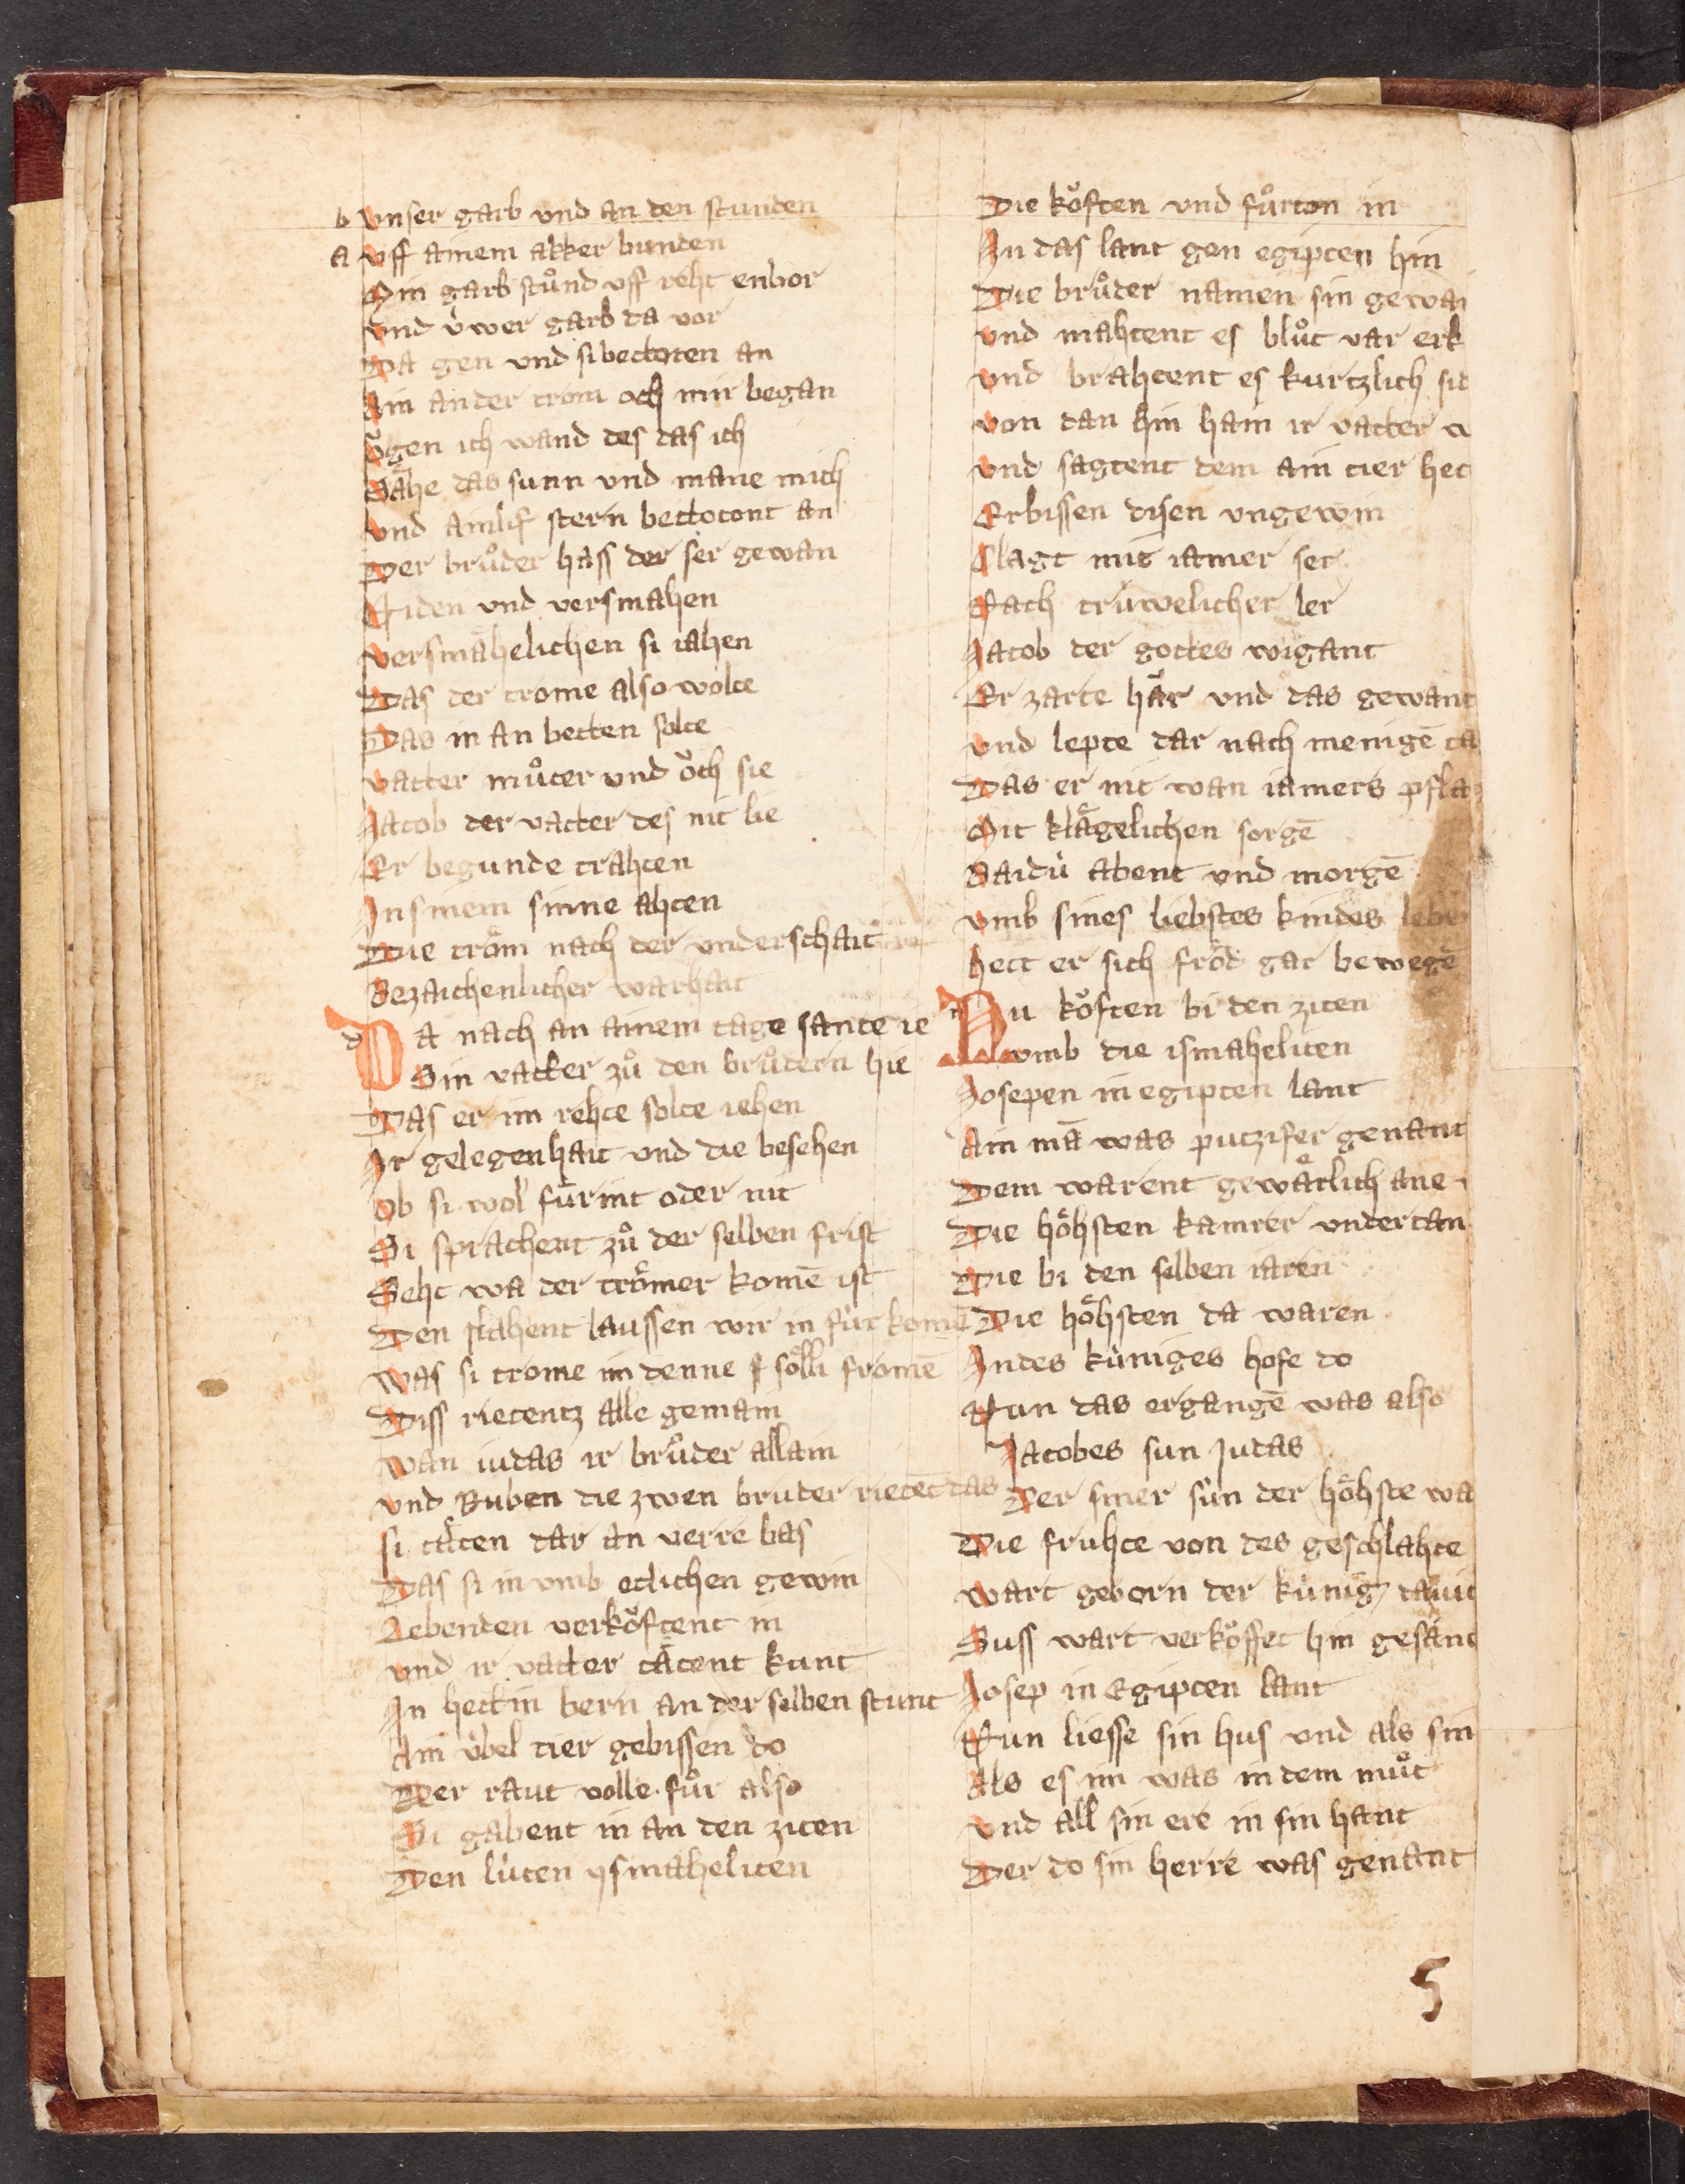 b vnser garb vnd an den stunden
a vff ainem akker bunden
Min garb stuͦnd vff reht enbor
vnd úwer garb da vor
Da gen vnd si bettoten an
Ain ander trom och mir began
oͮgen ich wand des das ich
Sähe das sunn vnd mane mich
vnd ainlif stern bettotont an
Der bruͦder hass der ser gewan
Niden vnd versmahen
versmähelichen si iahen
Das der trome also wolte
Das in an betten solte
vatter muͦter vnd oͮch sie
Jacob der vatter des nit lie
Er begunde trahten
In sinem sinne ahten
Die tröm nach der vnderschait
Bezaichenlicher warhait
Da nach an ainem tage sante ie
Sin vatter zuͦ den bruͦdern hie
Das er im rehte solte iehen
Ir gelegenhait vnd die besehen
Ob si wol fuͦrint oder nit
Si sprachent zuͦ der selben frist
Seht wa der trömer komē ist
Den slahent laussen wir in fúr komē
was si trome im denne sölli fromē
Diss rietentz alle gemain
wan iudas ir bruͦder allain
vnd Ruben die zwen bruder rietēt das
si täten dar an verre bas
Das si in vmb etlichen gewin
Lebenden verkoͮftent in
vnd ir vatter tätent kunt
In hett in bern an der selben stunt
Ain úbel tier gebissen do
Der raut volle fuͦr also
Si gabent in an den ziten
Den lúten ysmaheliten
Die koͮften vnd fuͦrton in
In das lant gen egipten hin
Die bruͦder namen sin gewa
vnd mahtent es bluͦt var erk
vnd brahtent es kurtzlich sid
von dan hin haim ir vatter
vnd sagtent dem ain tier het
Erbissen disen vngewin
Clagt mit iamer ser
Nach trúwelicher ler
Jacob der gottes wigant
Er zarte här vnd das gewant
vnd lepte dar nach menigē ta
Das er nit wan iamers pfla
Mit klägelichen sorgē
Baidú abent vnd morgē
vmb sines liebstes kindes lebe
hett er sich fröd gar bewegē
Nu koͮften bi den ziten
vmb die ismaheliten
Josepen in egipten lant
Ain mā was putzifer genant
Dem warent gewärlich ane
Die höhsten kamrer vndertan
Die bi den selben iaren
Die höhsten da waren
In des kúniges hofe do
Nun das ergangē was also
Jacobes sun Judas
Der siner sún der höhste wa
Die fruhte von des geschlahte
wart geborn der kúnig dauit
Suss wart verkoͮffet hin gesant
Josep in Egipten lant
Nun liesse sin hus vnd als sin
Als es im was in dem muͦt
vnd all sin ere in sin hant
Der do sin herre was genant
5